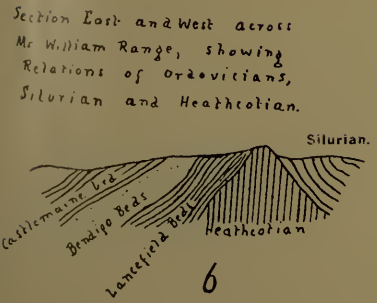 Section East and West across
Mt William Range, showing
Relations of Ordovicians,
Silurian and Heathcotian.
Silurian.
Castlemaine bed
Bendigo Beds
Lancefield Beds
Heathcotian
6